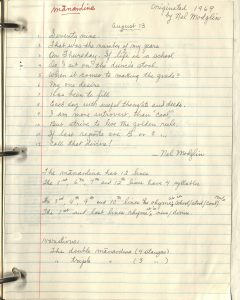 Manardina
Originated 1969
by Nel Modglin
August 13
1. Seventy nine.
2. That was the number of my years
3. On Thursday. If life is a school
4. Do I sit on the dunce's stool
5. When it comes to making the grade?
6. My one desire
7. Has been to fill
8. Each day with useful thoughts and deeds.
9. I am more introvert than cool,
10. But strive to live the golden rule.
11. If last reports are B or
12. Call that divine!
Nel Modglin
The manardina has 12 lines
The 1st, 6th, 7th and 12th lines have 4 syllables
The 3rd, 4th, 9th and 10th lines the rhyme (school/stool/cool/rule)
The 1st and last lines rhyme, nine/divine.
Variations:
The double manardina (2 stanzas)
" triple " (3 ")